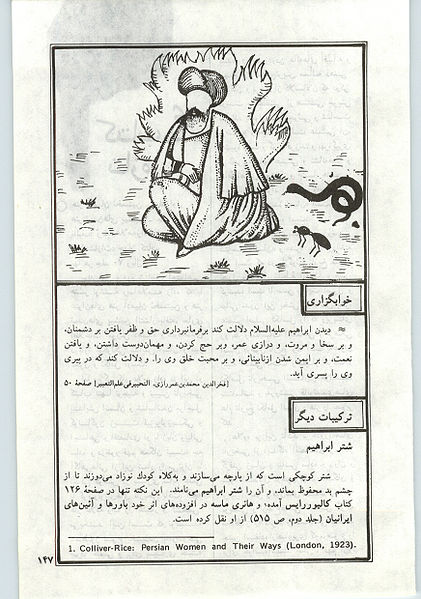 خوابگزاری
≈ دیدن ابراهیم علیه‌السلام دلالت کند برفرمانبرداری حق و ظفر یافتن بر دشمنان،
و بر سخا و مروت، و درازی عمر، وبر حج کردن، و مهمان‌دوست داشتن، و یافتن
نعمت، و بر ایمن شدن ازنابینائی، و بر محبت خلق وی را. و دلالت کند که در پیری
وی را پسری آید.
[فخرالدین محمدبن‌عمررازی، التحبیرفی‌علم‌التعبیر] صفحهٔ ۵۰
ترکیبات دیگر
شتر ابراهیم
شتر کوچکی است که از پارچه می‌سازند و به‌کلاه کودك نوزاد می‌دوزند تا از
چشم بد محفوظ بماند، و آن را شتر ابراهیم می‌نامند. این نکته تنها در صفحهٔ ۱۲۶
کتاب کالیوررایس آمده؛ و هانری ماسه در افزوده‌های اثر خود باورها و آئین‌های
ایرانیان (جلد دوم، ص ۵۱۵) از او نقل کرده است.
1. Colliver-Rice: Persian Women and Their Ways (London, 1923).
۱۴۷